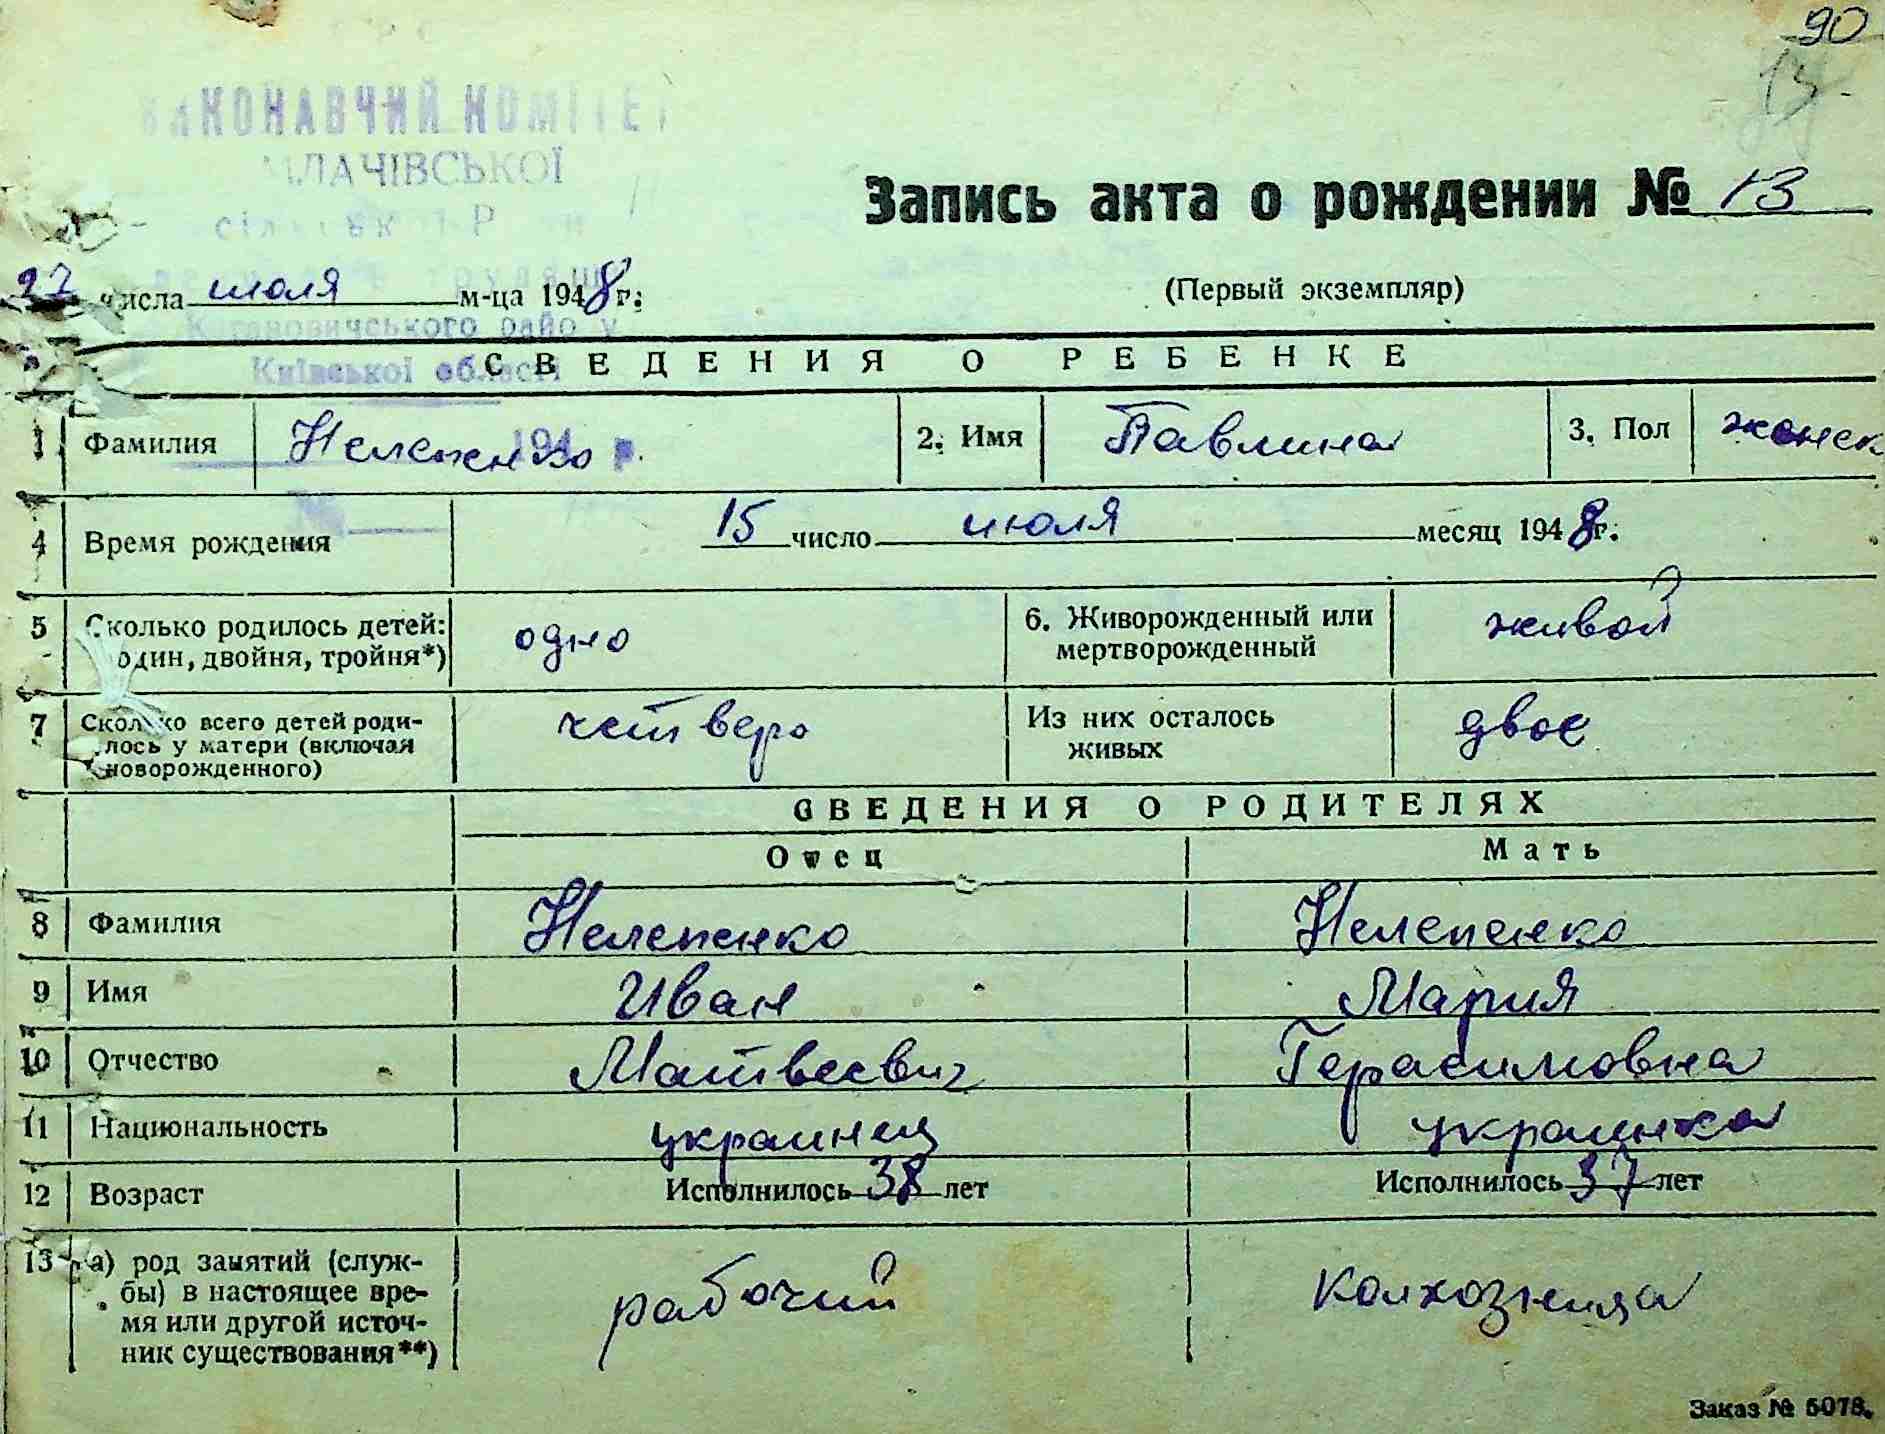 90
13.
КОНАВЧИЙ КОМІТЕ
МЛАЧІВСЬКОЇ
Запись акта о рождении № 13
27 числа июля м-ца 1948 г.
(Первый экземпляр)
Кагановичського райо у
Київської області
СВЕДЕНИЯ О РЕБЕНКЕ
1 Фамилия Нелепенко 194 р. 2. Имя Павлина 3. Пол женск
№
4 Время рождения 15 число июля месяц 1948 г.
5 Сколько родилось детей: 6. Живорожденный или живой
один, двойня, тройня*) одно мертворожденный
7 Сколько всего детей роди- четверо Из них осталось двое
лось у матери (включая живых
новорожденного)
СВЕДЕНИЯ О РОДИТЕЛЯХ
Отец Мать
8 Фамилия Нелепенко Нелепенко
9 Имя Иван Мария
10 Отчество Матвеевич Герасимовна
11 Национальность украинец украинка
12 Возраст Исполнилось 38 лет Исполнилось 37 лет
13 а) род занятий (служ-
бы) в настоящее вре- рабочий колхозница
мя или другой источ-
ник существования**)
Заказ № 5078.